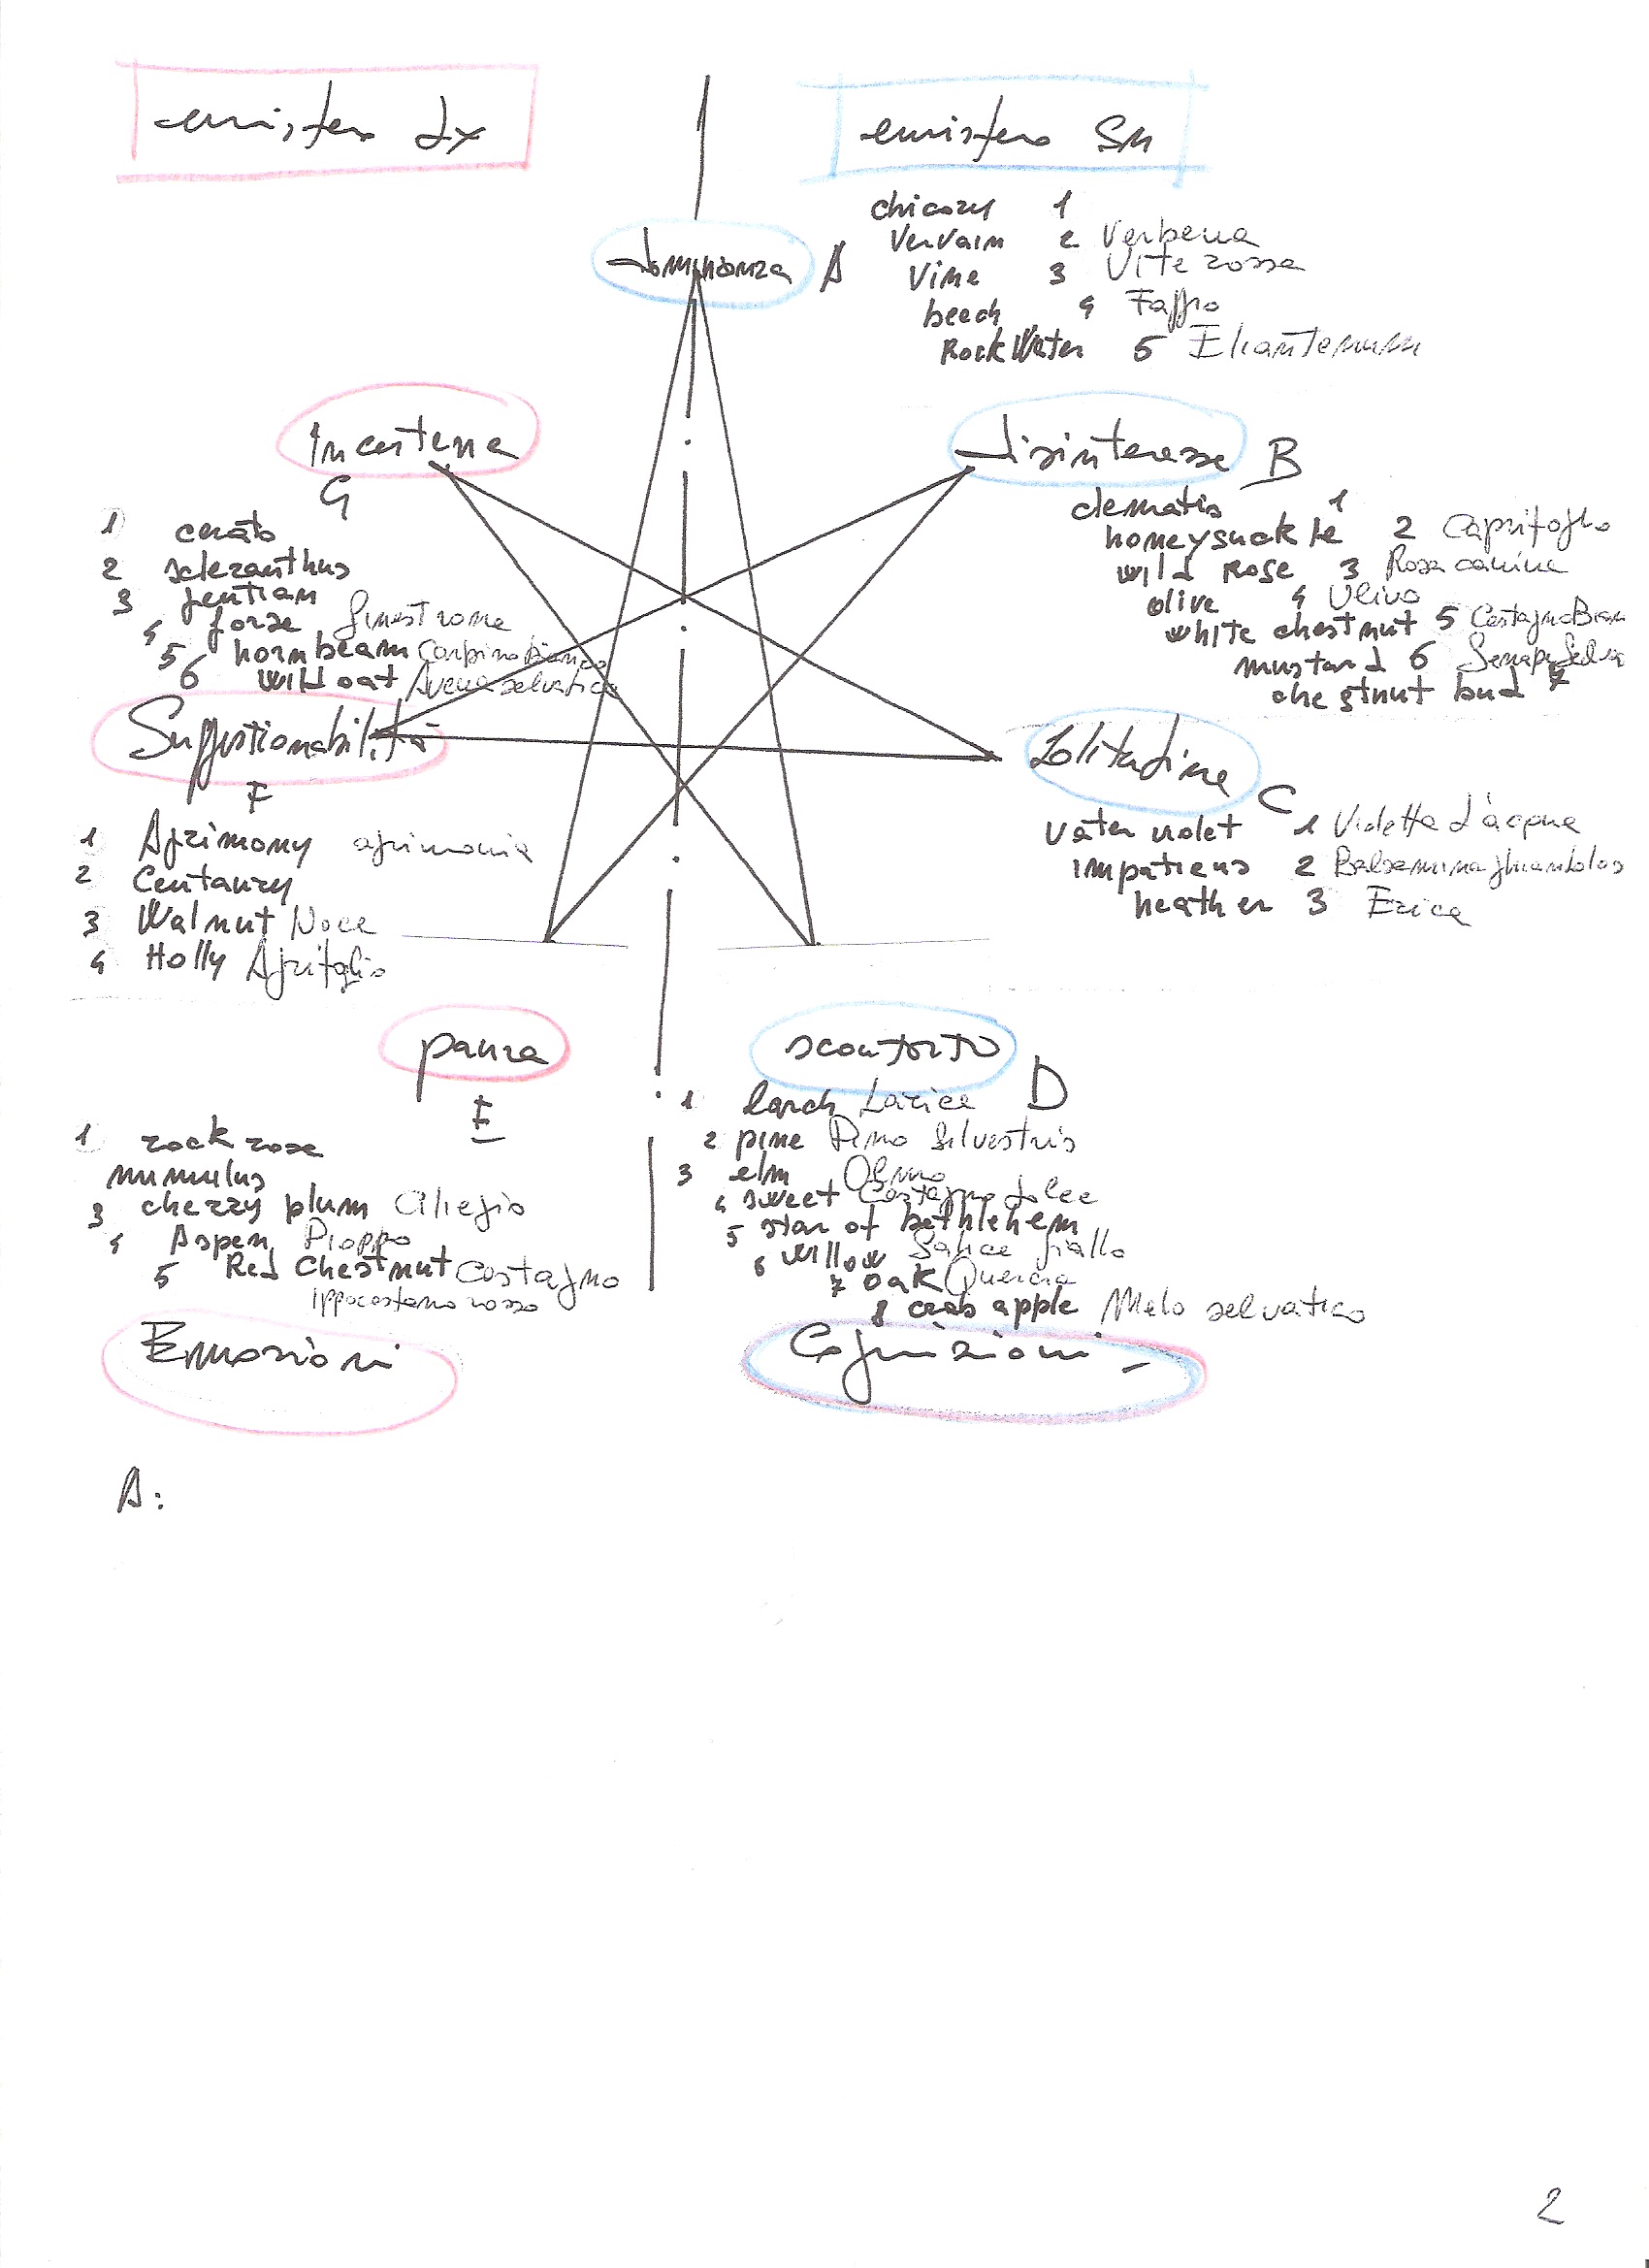 emisfero dx
emisfero Sn
dominanza A
chicory 1
Vervain 2 Verbena
Vine 3 Vite rossa
beech 4 Faggio
Rock Water 5 Eliantemum
Incertezze
G
1 cerato
2 scleranthus
3 gentian
4 gorse ginestrone
5 hornbeam Carpino Bianco
6 Wild oat Avena selvatica
disinteresse B
clematis 1
honeysuckle 2 Caprifoglio
wild Rose 3 Rosa canina
olive 4 Ulivo
white chestnut 5 Castagno Bian
mustard 6 Senape Selva
chestnut bud 7
Suggestionabilità
F
1 Agrimony agrimonia
2 Centaury
3 Walnut Noce
4 Holly Agrifoglio
Solitudine
C
Vater violet 1 Violetta d'acqua
impatiens 2 Balsamina
heather 3 Erica
paura
E
1 rock rose
mimulus
3 cherry plum Ciliegio
4 Aspen Pioppo
5 Red Chestnut Castagno
ippocastano rosso
sconforto
D
1 larch Larice
2 pine Pino Silvestris
3 elm Olmo
4 sweet Castagno dolce
5 star of bethlehem
6 willow Salice giallo
7 oak Quercia
8 crab apple Melo selvatico
Emozioni
Cognizioni -
A:
2